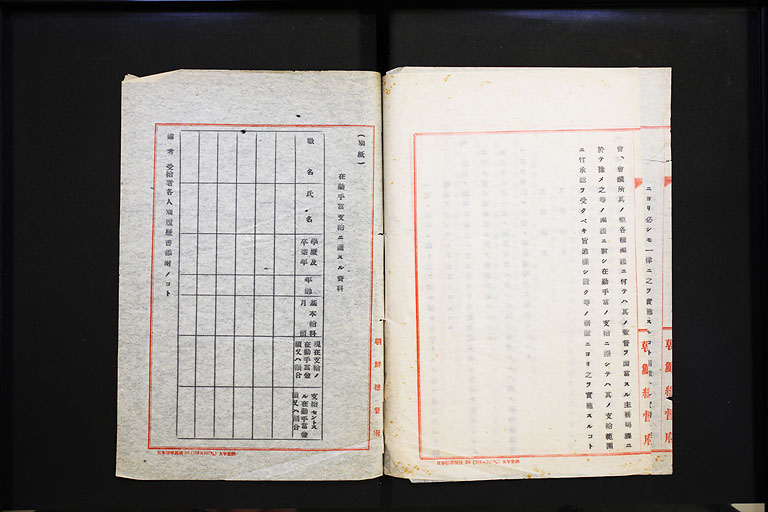 ニヨリ必シモ一律ニ之ヲ實施スルコト
朝鮮總督府
會、會議所其ノ他各種團體ニ付テハ其ノ監督ヲ擔當スル主務局課ニ
於テ豫メ之等ノ團體ニ對シ在勤手當ノ支給ニ關シテハ其ノ支給範圍
ニ付承認ヲ受クベキ旨通牒シ置ク等ノ措置ニヨリ之ヲ實施スルコト
朝鮮總督府
(別紙)
在勤手當支給ニ關スル資料
職名
氏名
學歷及卒業年
年齡
基本給料月額
現在支給ノ在勤手當金額又ハ割合
支給セントスル在勤手當金額又ハ割合
備考 受給者各人別履歷書添附ノコト
朝鮮總督府